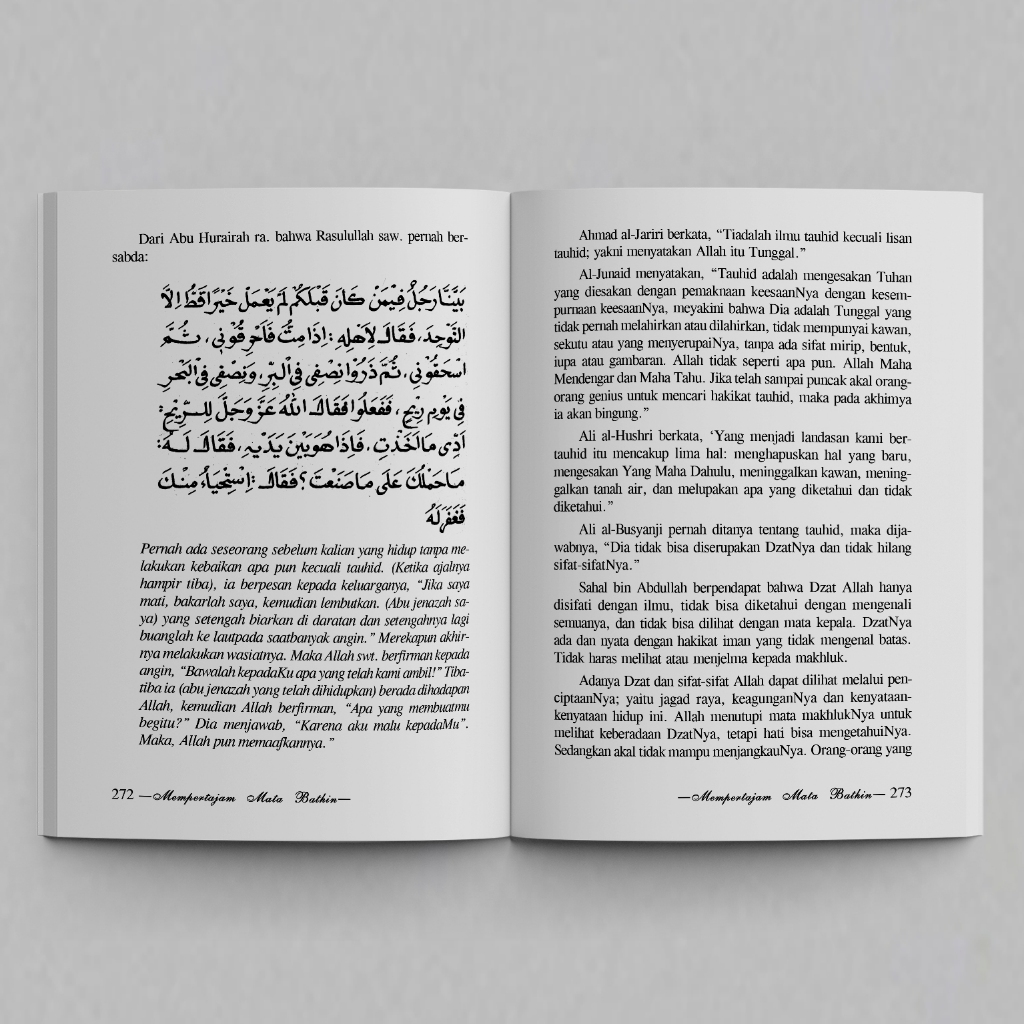 Dari Abu Hurairah ra. bahwa Rasulullah saw. pernah ber-
sabda:
بَيْنَا رَجُلٌ فِيْمَنْ كَانَ قَبْلَكُمْ لَمْ يَعْمَلْ خَيْرًا قَطُّ اِلَّا
التَّوْحِيْدَ، فَقَالَ لِاَهْلِهِ : اِذَا مِتُّ فَاَحْرِقُوْنِي، ثُمَّ
اسْحَقُوْنِي، ثُمَّ ذَرُوْا نِصْفِى فِي الْبَرِّ، وَنِصْفِى فِي الْبَحْرِ
فِي يَوْمٍ رِيْحٍ، فَفَعَلُوْا فَقَالَ اللهُ عَزَّ وَجَلَّ لِلرِّيْحِ :
اَدِّى مَا اَخَذْتِ، فَاِذَا هُوَ بَيْنَ يَدَيْهِ، فَقَالَ لَهُ :
مَا حَمَلَكَ عَلَى مَا صَنَعْتَ ؟ فَقَالَ : اِسْتِحْيَاءً مِنْكَ
فَغَفَرَ لَهُ
Pernah ada seseorang sebelum kalian yang hidup tanpa me-
lakukan kebaikan apa pun kecuali tauhid. (Ketika ajalnya
hampir tiba), ia berpesan kepada keluarganya, “Jika saya
mati, bakarlah saya, kemudian lembutkan. (Abu jenazah sa-
ya) yang setengah biarkan di daratan dan setengahnya lagi
buanglah ke lautpada saatbanyak angin.” Merekapun akhir-
nya melakukan wasiatnya. Maka Allah swt. berfirman kepada
angin, “Bawalah kepadaKu apa yang telah kami ambil!” Tiba-
tiba ia (abu jenazah yang telah dihidupkan) berada dihadapan
Allah, kemudian Allah berfirman, “Apa yang membuatmu
begitu?” Dia menjawab, “Karena aku malu kepadaMu”.
Maka, Allah pun memaafkannya.”
272 —Mempertajam Mata Bathin—
Ahmad al-Jariri berkata, “Tiadalah ilmu tauhid kecuali lisan
tauhid; yakni menyatakan Allah itu Tunggal.”
Al-Junaid menyatakan, “Tauhid adalah mengesakan Tuhan
yang diesakan dengan pemaknaan keesaanNya dengan kesem-
purnaan keesaanNya, meyakini bahwa Dia adalah Tunggal yang
tidak pernah melahirkan atau dilahirkan, tidak mempunyai kawan,
sekutu atau yang menyerupaiNya, tanpa ada sifat mirip, bentuk,
iupa atau gambaran. Allah tidak seperti apa pun. Allah Maha
Mendengar dan Maha Tahu. Jika telah sampai puncak akal orang-
orang genius untuk mencari hakikat tauhid, maka pada akhirnya
ia akan bingung.”
Ali al-Hushri berkata, ‘Yang menjadi landasan kami ber-
tauhid itu mencakup lima hal: menghapuskan hal yang baru,
mengesakan Yang Maha Dahulu, meninggalkan kawan, mening-
galkan tanah air, dan melupakan apa yang diketahui dan tidak
diketahui.”
Ali al-Busyanji pernah ditanya tentang tauhid, maka dija-
wabnya, “Dia tidak bisa diserupakan DzatNya dan tidak hilang
sifat-sifatNya.”
Sahal bin Abdullah berpendapat bahwa Dzat Allah hanya
disifati dengan ilmu, tidak bisa diketahui dengan mengenali
semuanya, dan tidak bisa dilihat dengan mata kepala. DzatNya
ada dan nyata dengan hakikat iman yang tidak mengenal batas.
Tidak haras melihat atau menjelma kepada makhluk.
Adanya Dzat dan sifat-sifat Allah dapat dilihat melalui pen-
ciptaanNya; yaitu jagad raya, keagunganNya dan kenyataan-
kenyataan hidup ini. Allah menutupi mata makhlukNya untuk
melihat keberadaan DzatNya, tetapi hati bisa mengetahuiNya.
Sedangkan akal tidak mampu menjangkauNya. Orang-orang yang
—Mempertajam Mata Bathin— 273